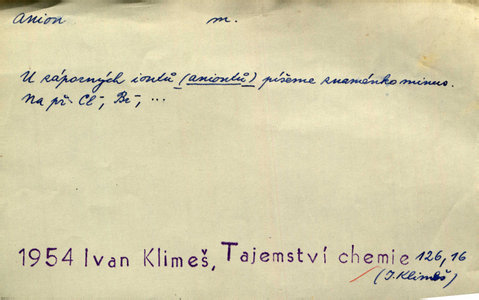 anion m.
U záporných iontů (aniontů) píšeme znaménko minus.
Na př. Cl⁻, Br⁻, ...
1954 Ivan Klimeš, Tajemství chemie 126,16
(I. Klimeš)